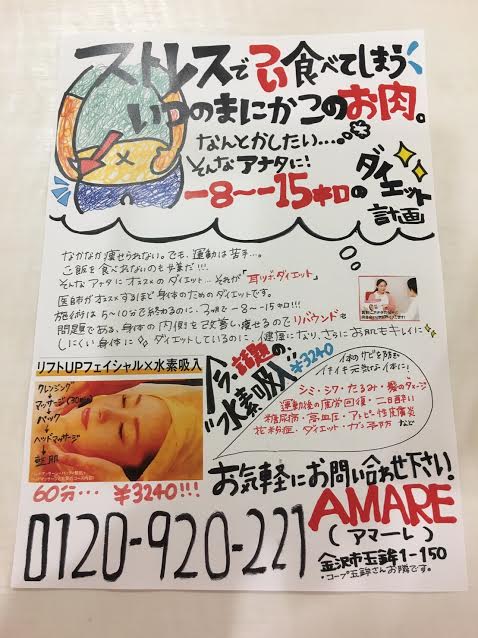 ストレスでつい食べてしまう
いつのまにかこのお肉。
なんとかしたい…。
そんなアナタに!
-8〜-15キロのダイエット計画
なかなか痩せられない。でも、運動は苦手…。
ご飯を食べれないのも嫌だ!!!
そんなアナタにオススメのダイエット…それが「耳ツボダイエット」
医師がオススメするほど身体のためのダイエットです。
施術は5〜10分で終わるのに、3ヶ月で-8〜-15キロ!!!
問題である、身体の内側を改善し痩せるのでリバウンドも
しにくい身体に。ダイエットしているのに、健康になり、さらにお肌もキレイに
リフトUPフェイシャル×水素吸入
クレンジング
マッサージ(30分)
↓
パック
↓
ヘッドマッサージ
↓
整肌
60分… ¥3240!!!
今、話題の
"水素吸入"
¥3240
体のサビを防ぎ
イキイキ元気な体に!
シミ・シワ・たるみ・髪のダメージ
運動後の疲労回復・二日酔い
糖尿病・高血圧・アトピー性皮膚炎
花粉症・ダイエット・ガン予防 など
お気軽にお問い合わせ下さい!
0120-920-221
AMARE
(アマーレ)
金沢市玉鉾1-150
*コープ玉鉾さんお隣です。